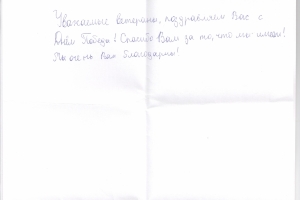 Уважаемые ветераны, поздравляем Вас с
Днём Победы! Спасибо Вам за то, что мы живы!
Мы очень Вам благодарны!